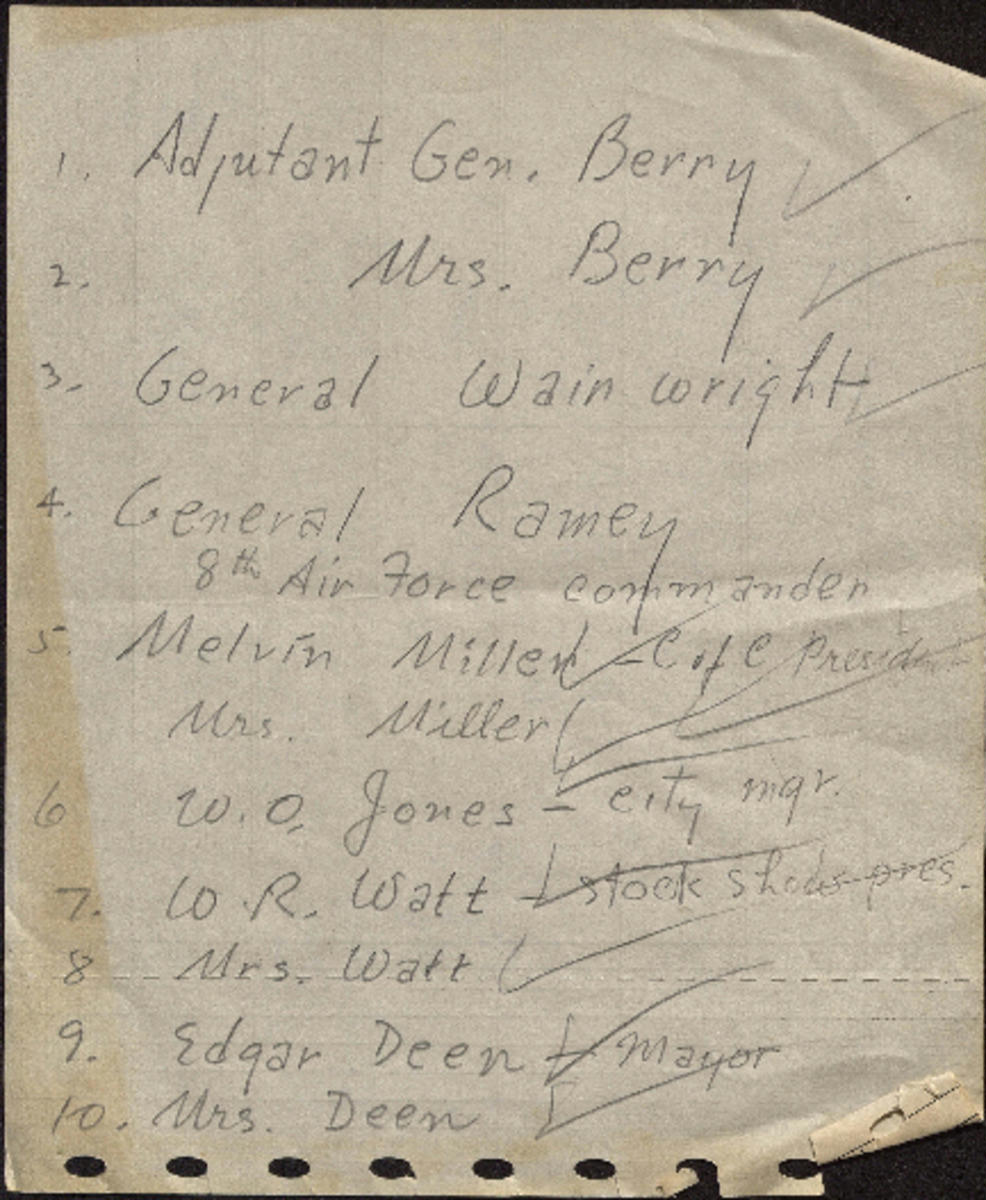 1. Adjutant Gen. Berry
2. Mrs. Berry
3. General Wainwright
4. General Ramey
8th Air Force commander
5. Melvin Miller - C of C President
Mrs. Miller
6 W. O. Jones - city mgr.
7. W. R. Watt - stock show pres.
8 Mrs. Watt
9. Edgar Deen - Mayor
10. Mrs. Deen